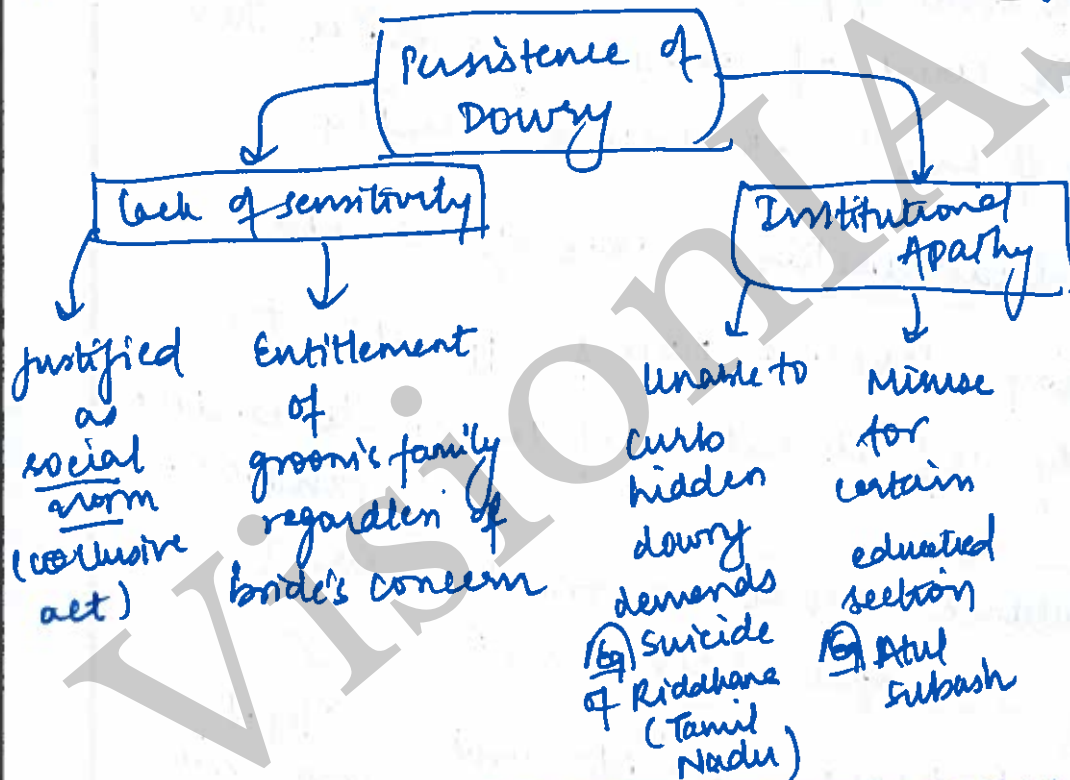 Persistence of
Dowry
Lack of sensitivity
Institutional
Apathy
Justified
as
social
norm
(collusive
act)
Entitlement
of
groom's family
regardless of
bride's concern
Unable to
curb
hidden
dowry
demands
Eg Suicide
of Riddhana
(Tamil
Nadu)
Misuse
for
certain
educated
section
Eg Atul
Subash
VisionIAS